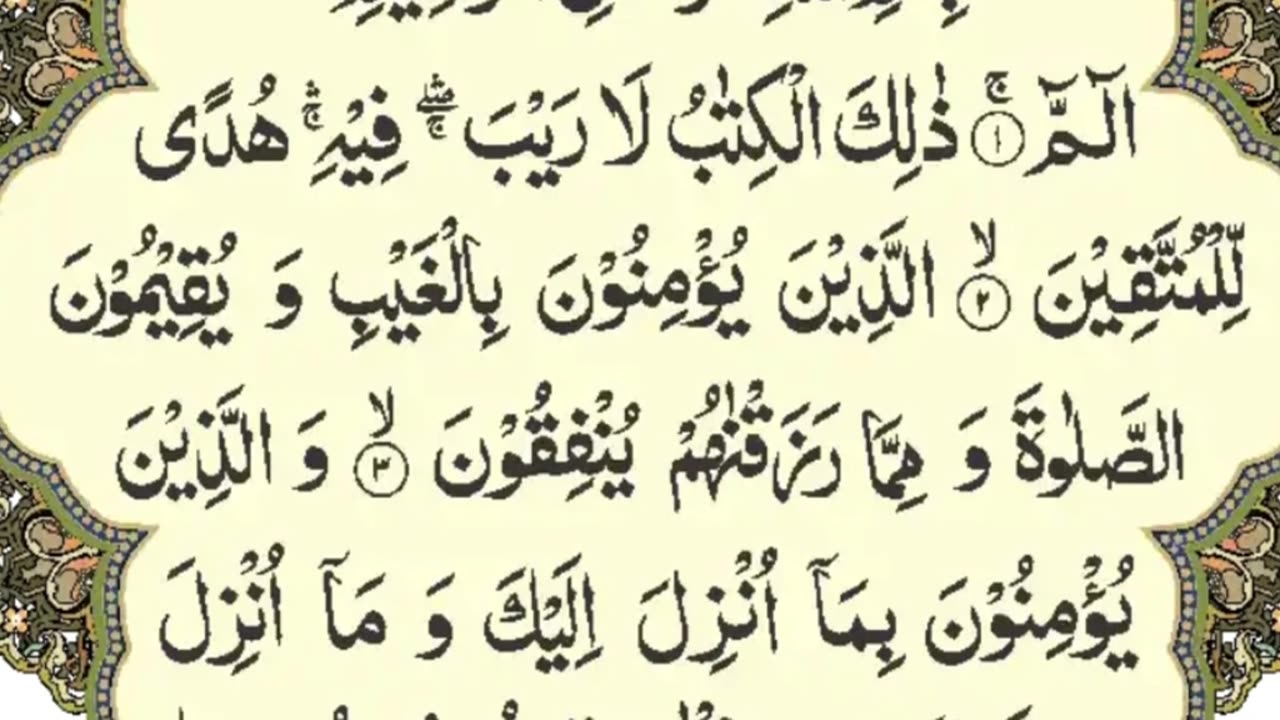 الٓـمّٓ ۚ ﴿۱﴾ ذٰلِكَ الْكِتٰبُ لَا رَیْبَ ۖۛۚ فِیْهِ ۚۛ هُدًی
لِّلْمُتَّقِیْنَ ۙ ﴿۲﴾ الَّذِیْنَ یُؤْمِنُوْنَ بِالْغَیْبِ وَ یُقِیْمُوْنَ
الصَّلٰوةَ وَ مِمَّا رَزَقْنٰهُمْ یُنْفِقُوْنَ ۙ ﴿۳﴾ وَ الَّذِیْنَ
یُؤْمِنُوْنَ بِمَاۤ اُنْزِلَ اِلَیْكَ وَ مَاۤ اُنْزِلَ